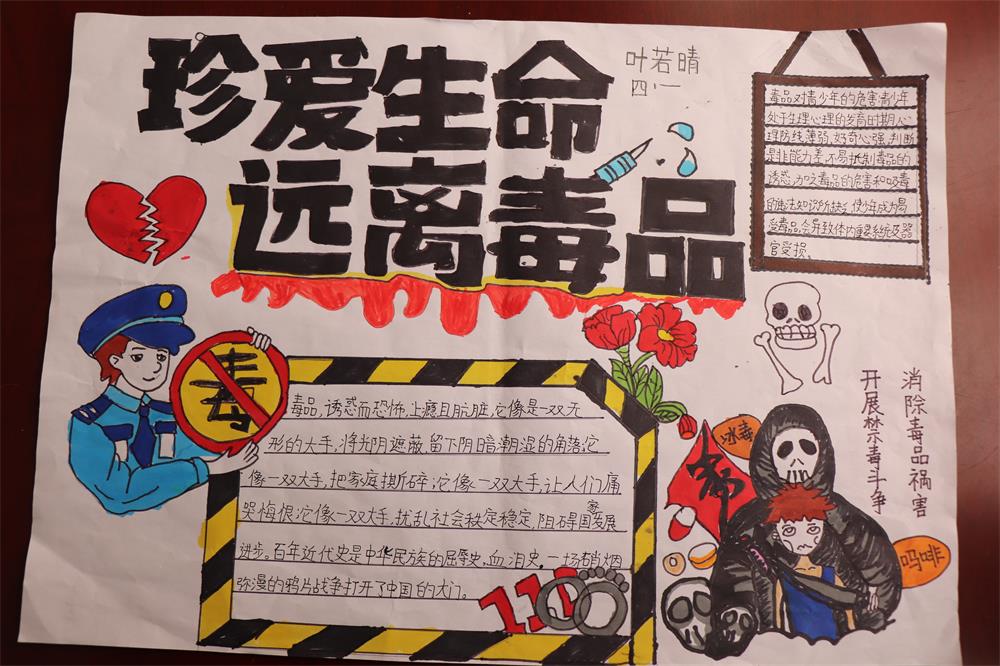 珍爱生命
远离毒品
叶若晴
四·一
毒品对青少年的危害:青少年
处于生理心理的发育时期,心
理防线薄弱,好奇心强,判断
是非能力差,不易抵制毒品的
诱惑,加之毒品的危害和吸毒
的违法知识所缺乡,使少年成为易
受毒品,会导致体内重要系统及器
官受损。
毒
毒品,诱惑而恐怖,上瘾且肮脏,它像是一双无
形的大手,将光阴遮蔽,留下阴暗潮湿的角落;它
像一双大手,把家庭撕碎;它像一双大手,让人们痛
哭悔恨;它像一双大手,扰乱社会秩定稳定,阻碍国家发展
进步。百年近代史是中华民族的屈辱史,血泪史,一场硝烟
弥漫的鸦片战争打开了中国的大门。
110
消除毒品祸害
开展禁毒斗争
冰毒
毒
吗啡